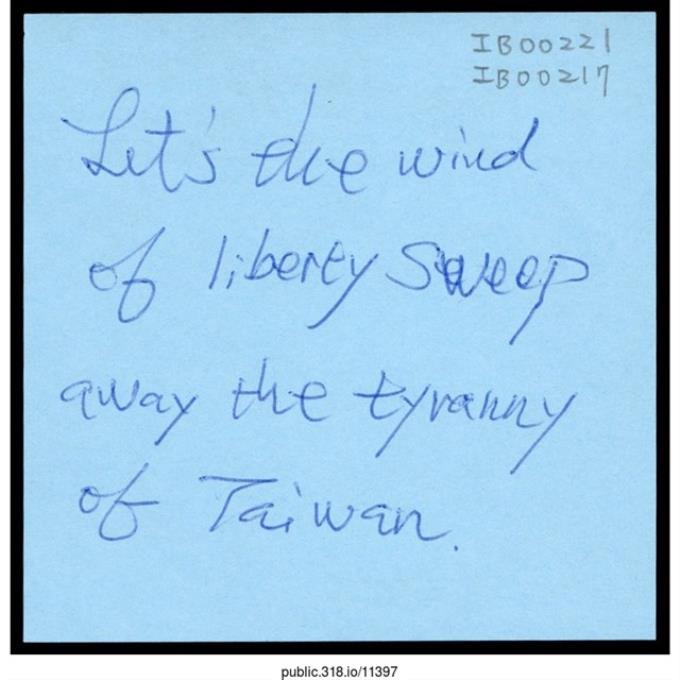 IB00221
IB00217
Let's the wind
of liberty sweep
away the tyranny
of Taiwan.
public.318.io/11397